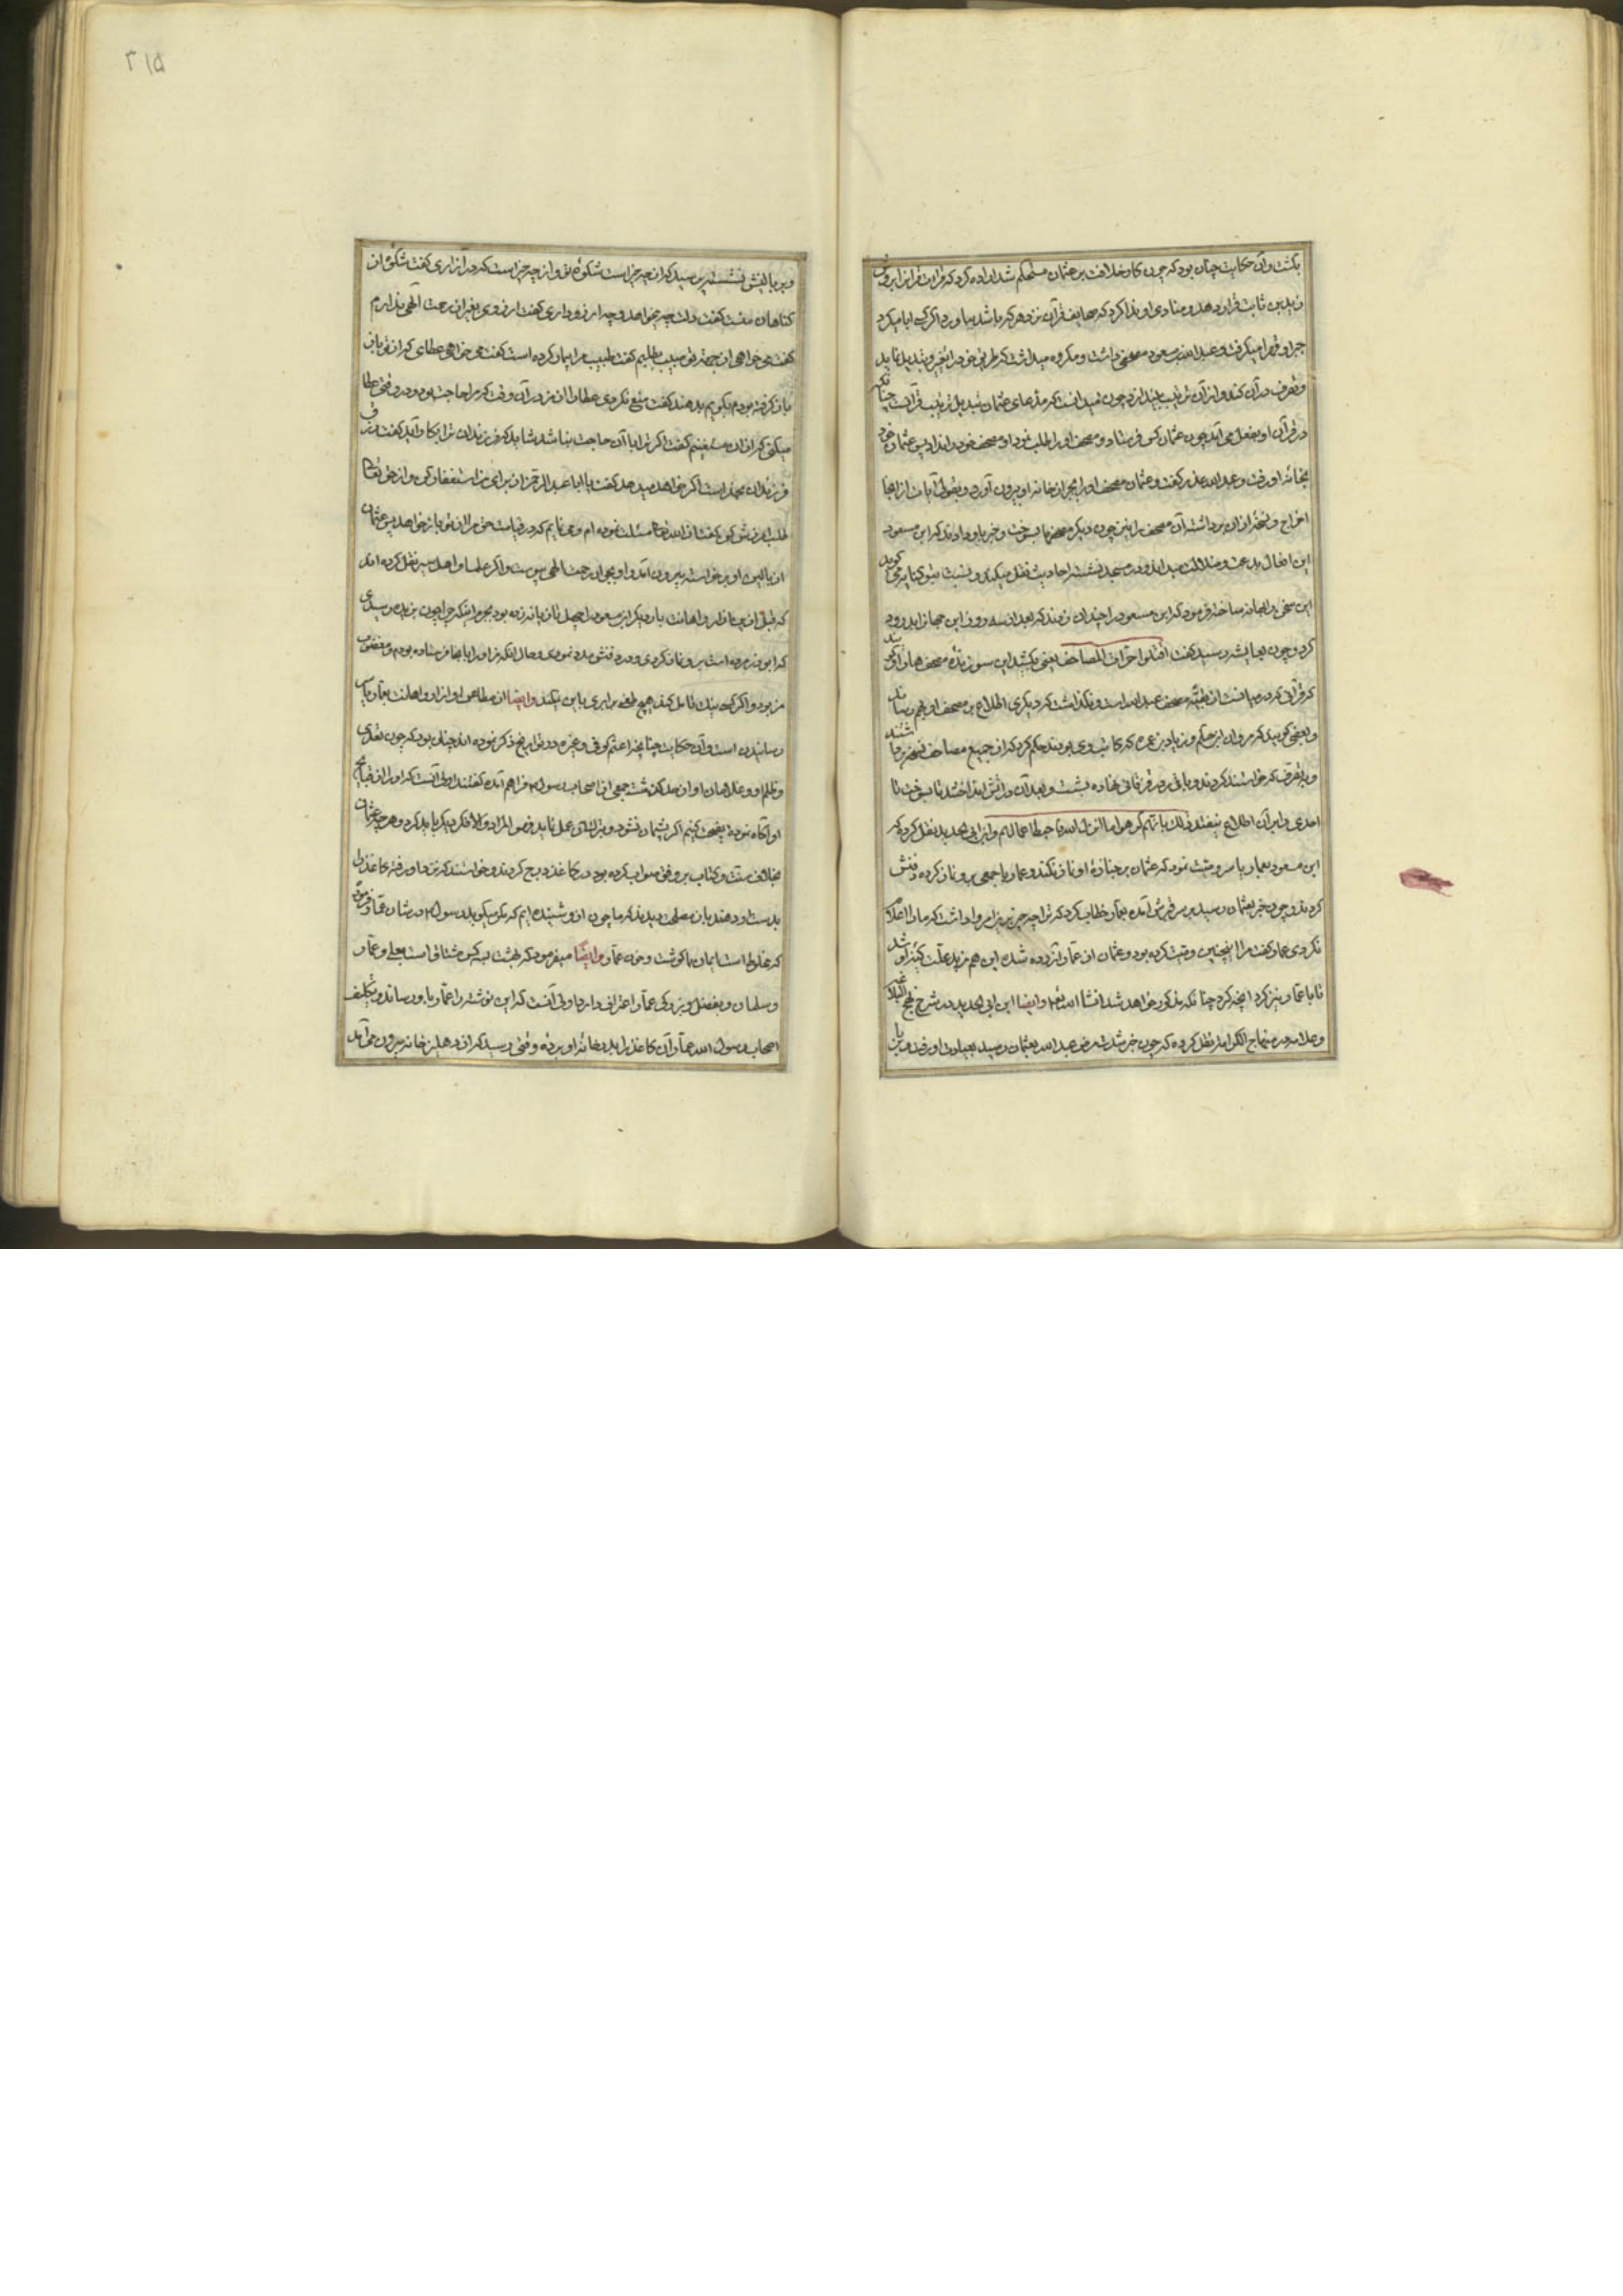 بکشت و آن حکایت چنان بود که چون کار خلافت بر عثمان مستحکم شد اراده کرد که قراءت قرآن را بر وفق
زید بن ثابت قرار دهد و منادی او ندا کرد که صحایف قرآن نزد هر که باشد بیاورد و اگر کسی ابا میکرد
جبرا و قهرا میکرفت و عبدالله بن مسعود مصحفی داشت و مکروه میداشت که طریق خود را تغییر و تبدیل نماید
و تصرف در آن کند و از آن ترتیب بیندازد چون میدانست که مدعای عثمان تبدیل ترتیب قرآنست چنانکه
در قرآن او بفعل می آید چون عثمان کس فرستاد و مصحف او را طلب نمود او مصحف خود را نداد پس عثمان خود
بخانه او رفت و عبدالله عذر کفت و عثمان مصحف او را بجبر از خانه او بیرون آورد و بعضی آیات از انجا
اخراج و نسخه از ان برداشته آن مصحف را نیز چون دیکر مصحفها بسوخت و خبر باو دادند که ابن مسعود
این افعال بدعت و ضلالت میداند و در مسجد نشسته احادیث نقل میکند و نسبت بتو کنایه می کوید
این سخن را بهانه ساخته فرمود که ابن مسعود را چندان زدند که بعد از سه روز این جهان را بدرود
کرد و چون بعایشه رسید کفت اقتلوا حراق المصاحف یعنی بکشید این سوزندهٔ مصحف ها را و کویند
که قرآنی که در میانست از بقیهٔ مصحف عبدالله است و نکذاشت که دیکری اطلاع بر مصحف او بهم رساند
و بعضی کویند که مروان ابن حکم و زیاد بن عمره که کاتب وی بودند حکم کرد که از جمیع مصاحف نسخه برداشتند
و بهر تصرف که خواستند کردند و باقی را در قزقانی نهاده بشست و بعد آن در آتش انداختند تا بسوخت تا
احدی را بر آن اطلاع نیفتد ذلک بانهم کرهوا ما انزل الله فاحبط اعمالهم و ابن ابی الحدید نقل کرده که
ابن مسعود بعمار یاسر وصیت نمود که عثمان بر جنازهٔ او نماز نکند و عمار با جمعی برو نماز کرده دفنش
کردند و چون خبر بعثمان رسید بر سر قبرش آمده بعمار خطاب کرد که ترا چه چیز برین امر واداشت که ما را اعلام
نکردی عمار کفت مرا اینچنین وصیت کرده بود و عثمان از عمار آزرده شده این هم مزید علت کینه او شد
تا با عمار نیز کرد آنچه کرد چنانکه مذکور خواهد شد انشا الله تعم و ایضا ابن ابی الحدید در شرح نهج البلاغه
و علامه در منهاج الکرامه نقل کرده که چون خبر شدت مرض عبدالله بعثمان رسید بعیادت او رفت و بر
۳۱۵
و بر بالینش نشسته پرسید که از چه چیز است شکوه تو و از چه چیز است که در آزاری کفت شکوه از
کناهان منست کفت دلت چه میخواهد و چه ارزو داری کفت ارزوی بغیر از رحمت الهی ندارم
کفت می خواهی از جهة تو طبیب بطلبیم کفت طبیب مرا بیمار کرده است کفت می خواهی عطای که از تو باز
باز کرفته بودم بکویم بدهند کفت منع نکردی عطا را از من در آن وقت که مرا حاجت بود و در وقتی عطا
میکنی که از ان مستغنیم کفت اکر ترا با آن حاجت نباشد شاید که فرزندان ترا بکار آید کفت رزق
فرزندان بر خدا است اکر خواهد میدهد کفت یا ابا عبد الرحمن از برای من استغفار کن و از حق تعالی
طلب آمرزش کن کفت از الله تعالی مسئلت نموده ام و می نمایم که در قیامت حق مرا از تو باز خواهد پس عثمان
از بالین او برخاسته بیرون آمد و او بجوار رحمت الهی پیوست و اکثر علما و اهل سیر نقل کرده اند
که قبل از بیماری او را اهانت بار دیکر ابن مسعود را چهل تازیانه زده بود بجرم اینکه چرا چون بربذه رسیدی
که ابوذر مرده است برو نماز کردی و در دفنش مدد نمودی و حال آنکه من او را بانجا فرستاده بودم و مغضوب
من بود و اکر کسی نیک تامل کند هیچ طعنی برابری باین نکند و ایضا از مطاعن او آزار و اهانت بعمار یاسر
رسانیدن است و آن حکایت چنانچه اعثم کوفی و غیره در تواریخ ذکر نموده اند چنان بود که چون تعدی
و ظلم او و غلامان او از حد کذشت جمعی از اصحاب رسول م فراهم آمده کفتند اولی آنست که او را از قبایح
او آکاه نموده نصیحت کنیم اکر پشمان نشود و بترک آن عمل نماید فهو المراد و الا فکر دیکر باید کرد و هر چه عثمان
بخلاف سنت و کتاب بر وفق صواب کرده بود در کاغذ درج کردند و خواستند که نزد او رفته کاغذ را
بدست او دهند باز مصلحت دیدند که ما چون از و شنیده ایم که مکرر میکوید رسول م در شان عمار فرموده
که مخلوط است ایمان با کوشت و خون عمار و ایضا میفرمود که بهشت بسه کس مشتاق است بعلی و عمار
و سلمان و بفضل و بزرکی عمار اعتراف دارد اولی آنست که این نوشته را عمار باو رساند و بتکلیف
اصحاب رسول الله عمار آن کاغذ را بدر خانه او برده وقتی رسید که از دهلیز خانه بیرون می آمد